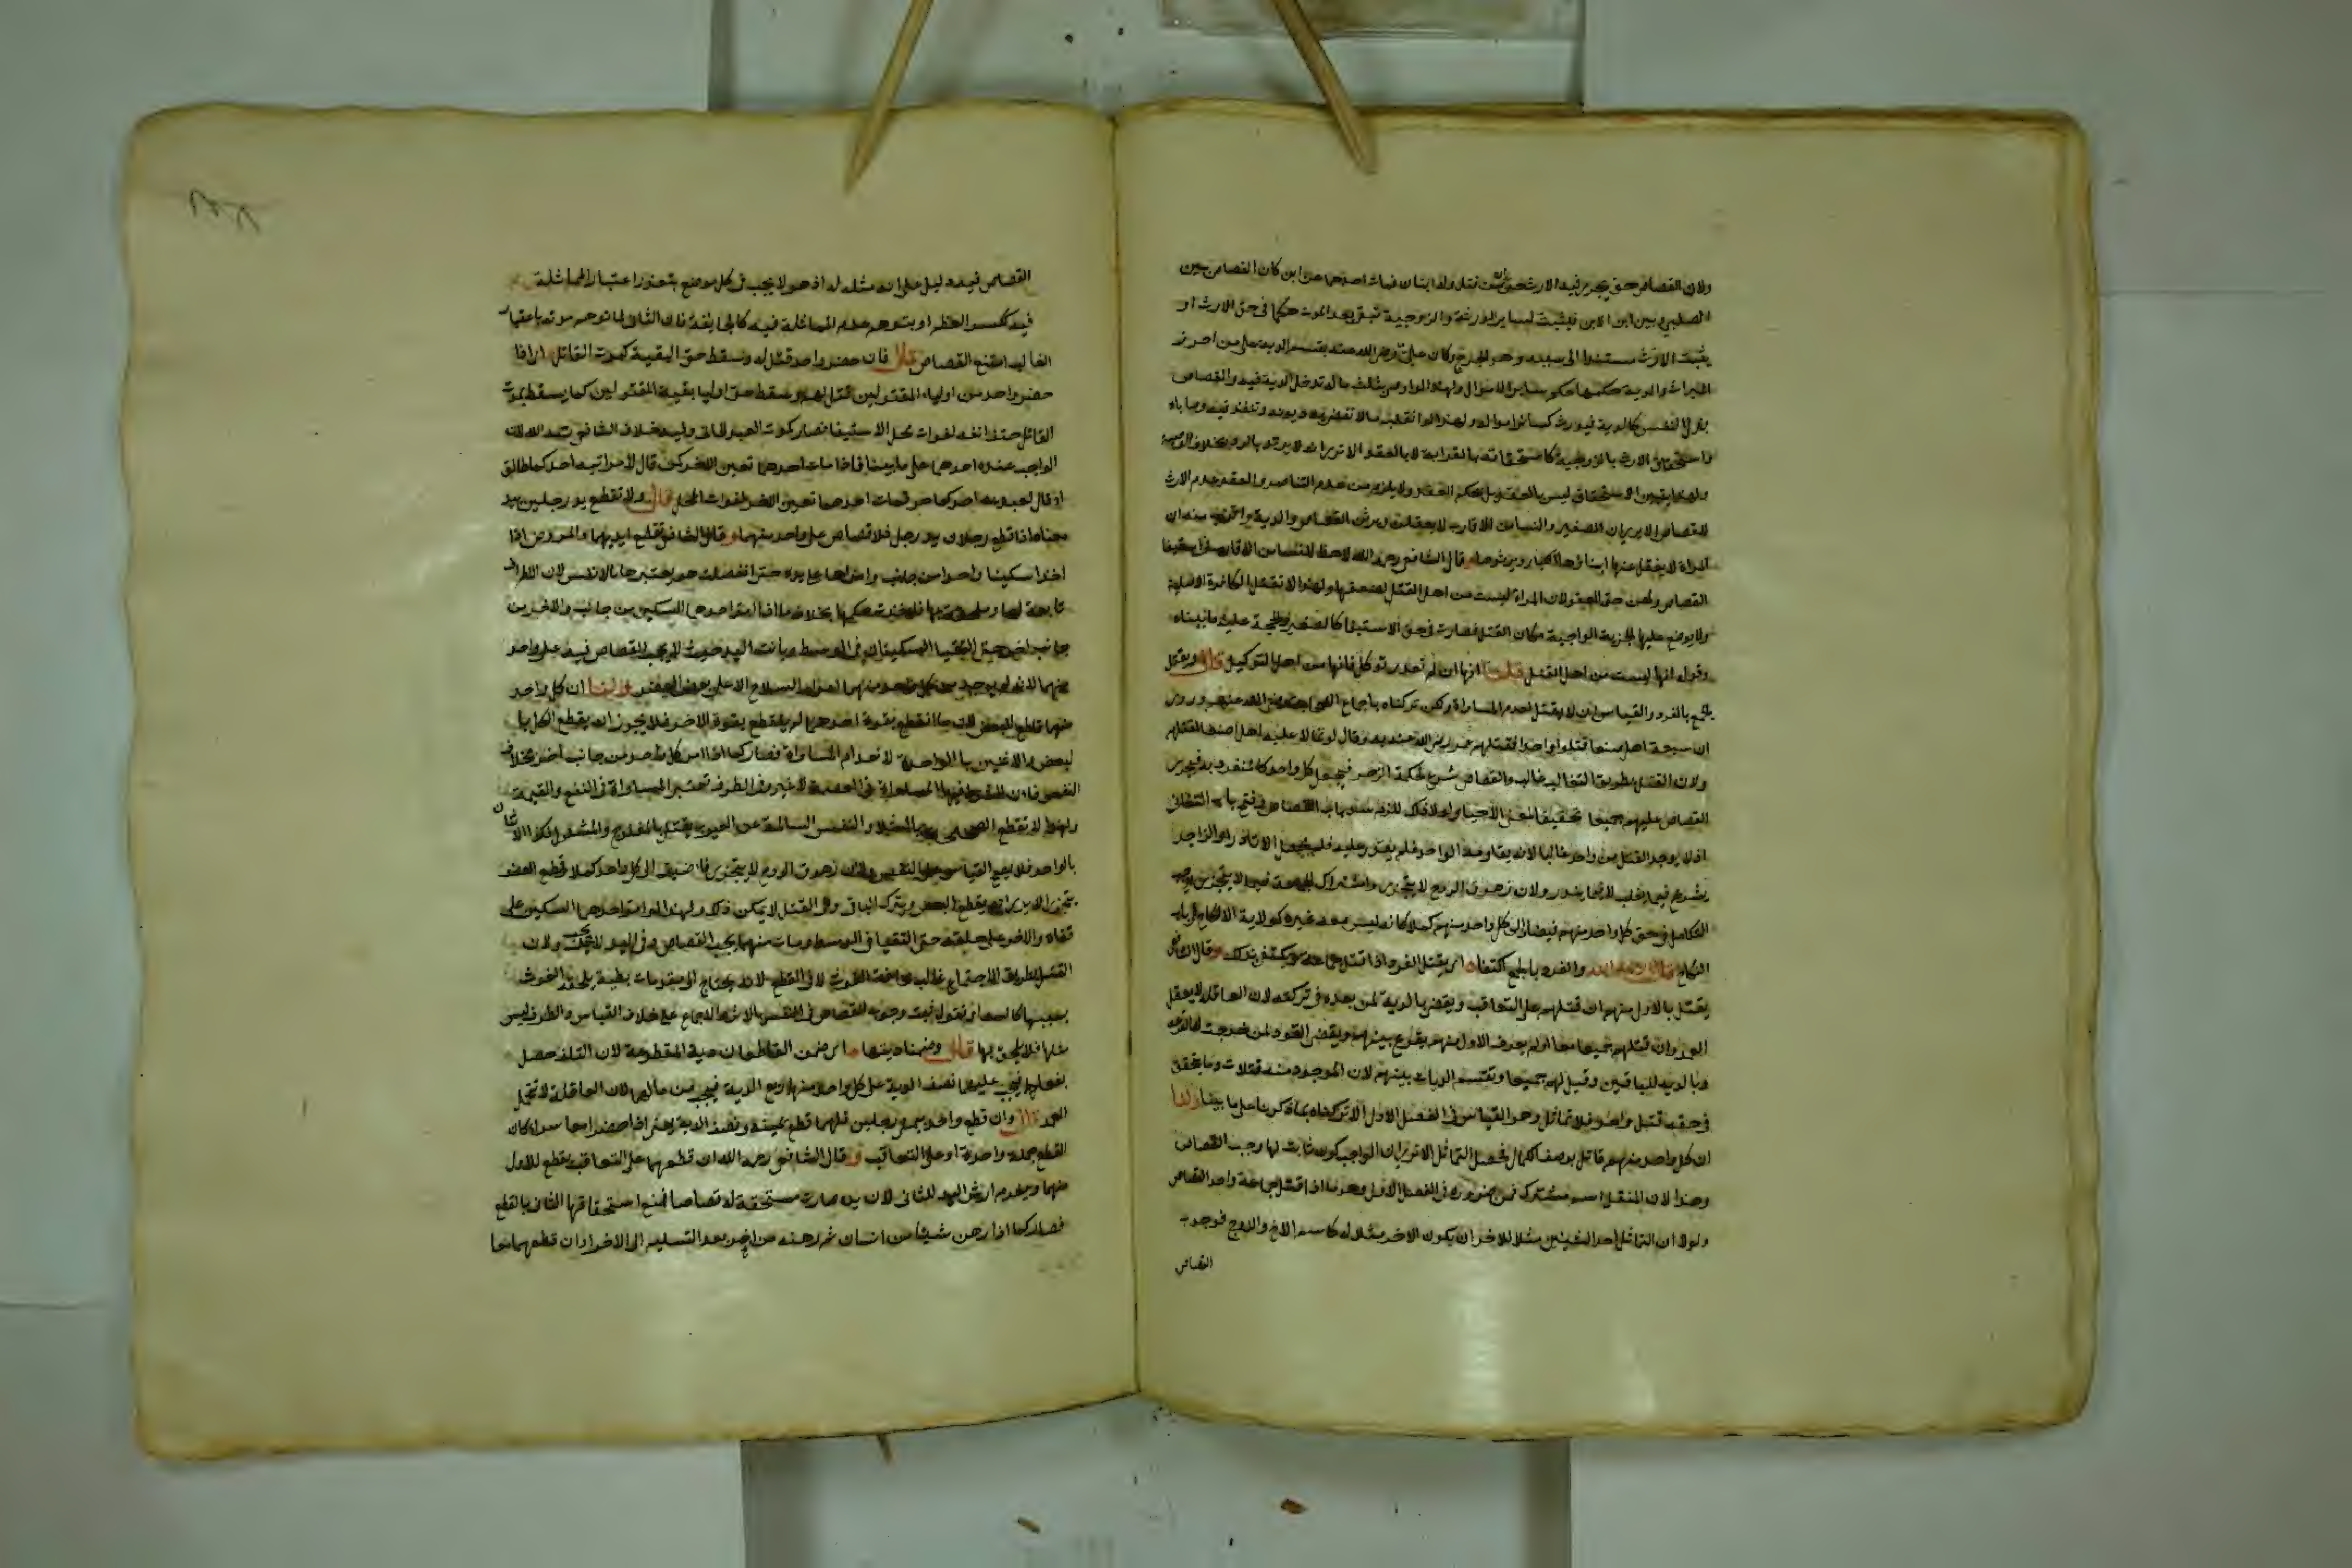 ولان القصاص حق يجري فيه الارث حتى ان من قتل وله ابنان فمات احدهما عن ابن كان القصاص بين
الصلبي وبين ابن الابن فيثبت لساير الورثة والزوجية تبقى بعد الموت حكما في حق الارث او
يثبت الارث مستندا الى سببه وهو الجرح وكان علي رض الله عنه يقسم الدية على من احرز
الميراث والدية حكمها حكم ساير الاموال ولهذا لو اوصى بثلث ماله تدخل الدية فيه والقصاص
بدل النفس كالدية فيورث كسائر امواله ولهذا لو انقلب مالا تقضى به ديونه وتنفذ فيه وصاياه
واستحقاق الارث بالزوجية كاستحقاقه بالقرابة لا بالعقد الا ترى انه لا يرتد بالرد بخلاف الوصية
ولهذا يتبين ان الاستحقاق ليس بالعقد بل بحكم العقد ولا يلزم من عدم التناصر والعقد عدم الارث
للقصاص الا يرى ان الصغير والنساء من الاقارب لا يعقلون ويرثن القصاص والدية
امراة لا يعقل عنها ابناؤها الكبار ويرثوها وقال الشافعي رحمه الله لا حظ للنساء من الاقارب في استيفا
القصاص ولهن حق العفو لان المراة ليست من اهل القتل لضعفها ولهذا لا تقتل الكافرة الاصلية
ولا يوضع عليها الجزية الواجبة مكان القتل فصارت في حق الاستيفا كالصغير والحجة عليه ما بيناه
وقوله انها ليست من اهل القتل قلنا انها ان لم تقدر توكل فانها من اهل التوكيل قال ويقتل
الجمع بالفرد والقياس ان لا يقتل لعدم المساواة ولكن تركناه باجماع الصحابة رضي الله عنهم وروي
ان سبعة من اهل صنعا قتلوا واحدا فقتلهم عمر رضي الله عنه به وقال لو تمالا عليه اهل صنعا لقتلتهم
ولان القتل بطريق التغالب غالب والقصاص شرع لحكمة الزجر فيجعل كل واحد كالمنفرد به فيجري
القصاص عليهم جميعا تحقيقا لمعنى الاحيا ولولا ذلك للزم سد باب القصاص وفتح باب التفاني
اذ لا يوجد القتل من واحد غالبا لانه يقاومه الواحد فلم يقدر عليه فلم يحصل الا نادرا والزاجر
يشرع فيما يغلب لا فيما يندر ولان زهوق الروح لا يتجزى واشتراك الجماعة فيما لا يتجزى يوجب
التكامل في حق كل واحد منهم فيضاف الى كل واحد منهم كملا كانه ليس معه غيره كولاية الانكاح في باب
النكاح قال رحمه الله والفرد بالجمع اكتفاء اي يقتل الفرد اذا قتل جماعة ويكتفى بذلك وقال الشافعي
يقتل بالاول منهم ان قتلهم على التعاقب ويقضى بالدية لمن بعده في تركته لان العاقلة لا يعقل
العمد وان قتلهم جميعا معا او لم يعرف الاول منهم يقرع بينهم ويقضى القود لمن خرجت له القرعة
وبالدية للباقين وقيل لهم جميعا وتقسم الديات بينهم لان الموجود منه قتلات وما يتحقق
في حقه قتل واحد فلا تماثل وهو القياس في الفصل الاول الا تركناه بما ذكرنا على ما بينا ولنا
ان كل واحد منهم قاتل بوصف الكمال فحصل التماثل الا ترى ان الواجب كون ثابت لما وجب القصاص
وهذا لان المثل اسم مشترك فمن ضرورة في الفصل الاول وهو ما اذا قتل جماعة واحدا القصاص
ولولا ان التماثل احد الشيئين مثلا للاخر ان يكون الاخر مثلا له كاسم الاخ والزوج فوجوب
القصاص
القصاص فيه دليل على انه مثله له اذ هو لا يجب في كل موضع يتعذر اعتبار المماثلة
فيه ككسر العظم او يتوهم عدم المماثلة فيه كالجايفة فان الثاني لما توهم موته باعتبار
الغالب امتنع القصاص قال فان حضر واحد قتل له وسقط حق البقية كموت القاتل اي اذا
حضر واحد من اولياء المقتولين قتل لهم وسقط حق اوليا بقية المقتولين كما يسقط بموت
القاتل حتف انفه لفوات محل الاستيفا فصار كموت العبد الجاني وفيه خلاف الشافعي رحمه الله لان
الواجب عنده احدهما على ما بينا فاذا مات احدهما تعين الاخر كمن قال لامراتيه احدكما طالق
او قال لعبديه احدكما حر فمات احدهما تعين الاخر لفوات المحل قال ولا تقطع يد رجلين بيد
معناه اذا قطع رجلان يد رجل فلا قصاص على واحد منهما وقال الشافعي تقطع ايديهما والمفروض اذا
اخذا سكينا واحدا من جانب وامراها على يده حتى انفصلت هو يعتبرها بالانفس لان الاطراف
تابعة لها فاخذت حكمها بخلاف ما اذا امر احدهما السكين من جانب والاخر من
جانب اخر حتى التقيا السكينان في الوسط وبانت اليد حيث لا يجب القصاص فيه على واحد
منهما لانه لم يوجد من كل واحد منهما امرار السلاح الا على بعض العضو ولنا ان كل واحد
منهما قاطع للبعض لان ما انقطع بقوة احدهما لم ينقطع بقوة الاخر فلا يجوز ان يقطع الكل بال
لبعض ولا الاثنين بالواحدة لانعدام المساواة فصار كما اذا امر كل واحد من جانب اخر بخلاف
النفس فان الشرط فيها المساواة في العصمة لا غير وفي الطرف تعتبر المساواة في النفع والقيمة
ولهذا لا تقطع الصحيحة بالشلا والنفس السالمة عن العيوب يقتل بالمفلوج والمشلول وكذا الاثنان
بالواحد فلا يصح القياس على النفس ولان زهوق الروح لا يتجزى فاضيف الى كل واحد كملا وقطع العضو
يتجزى الا يرى انه يقطع البعض ويترك الباقي وفي القتل لا يمكن ذلك ولهذا لو امر احدهما السكين على
قفاه والاخر على حلقه حتى التقيا في الوسط ومات منهما يجب القصاص وفي اليد لا يجب ولان
القتل بطريق الاجتماع غالب مخافة الغوث لا في القطع لانه يحتاج الى مقدمات بطيئة يلحقه الغوث
بسببها كالسعاية ثبت وجوب القصاص في النفس بالاثر والاجماع على خلاف القياس والطرف ليس
مثلها فلا يلحق بها قال وضمنا ديتها اي ضمن القاطعان دية المقطوعة لان التلف حصل
بفعلهما فيجب عليهما نصف الدية على كل واحد منهما ربع الدية فيجب من مالهما لان العاقلة لا تحمل
العمد قال وان قطع واحد يمين رجلين فلهما قطع يمينه ونصف الدية يعني اذا حضرا معا سواء كان
القطع جملة واحدة او على التعاقب وقال الشافعي رحمه الله ان قطعهما على التعاقب يقطع للاول
منهما ويغرم ارش اليد للثاني لان يده صارت مستحقة له قصاصا فمنع استحقاقها الثاني بالقطع
فصار كما اذا رهن شيئا من انسان ثم رهنه من اخر بعد التسليم الى الاخر وان قطعهما معا